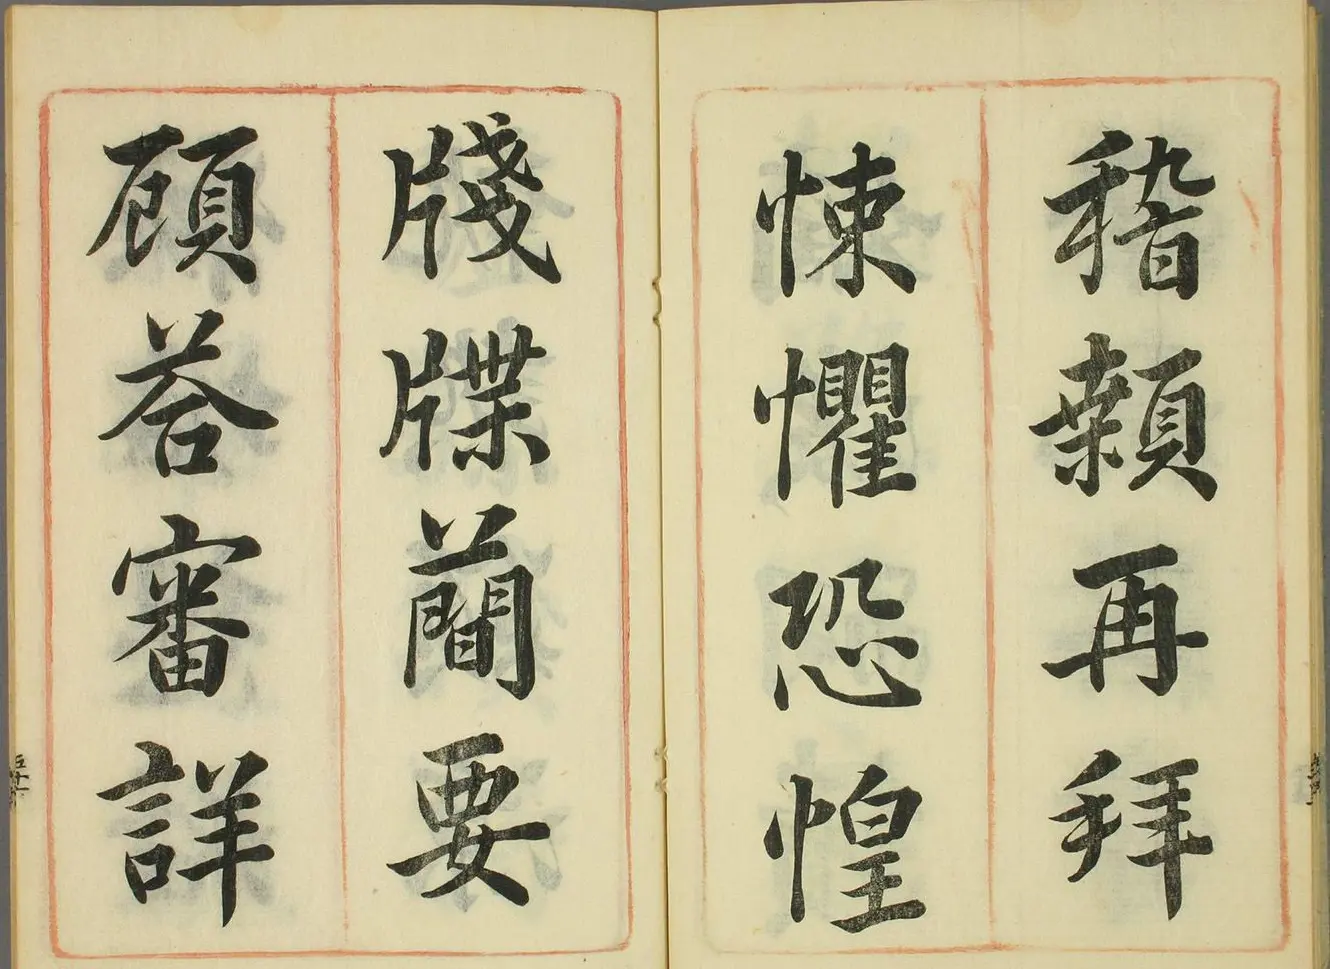 稽顙再拜
悚懼恐惶
牋牒蕳要
頋荅審詳